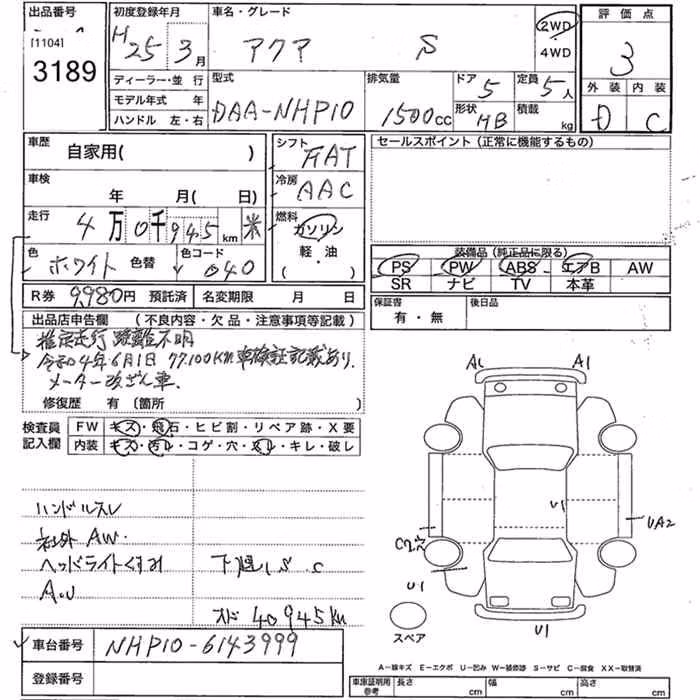 出品番号
[1104]
3189
初度登録年月
H25 3月
車名・グレード
アクア S
2WD
・
4WD
評価点
3
外装 内装
D C
ディーラー・並行
モデル年式 年
ハンドル 左・右
型式
DAA-NHP10
排気量
1500cc
ドア
5
形状
HB
定員
5人
積載
kg
車歴
自家用( )
車検
年 月( 日)
走行
4万0千945km
米
色
ホワイト
色替
色コード
040
シフト
FAT
冷房
AAC
燃料
ガソリン
軽・油
( ・ )
セールスポイント (正常に機能するもの)
装備品 (純正品に限る)
PS PW ABS エアB AW
SR ナビ TV 本革
R券 9,980円 預託済 名変期限 月 日
保証書
有・無
後日品
出品店申告欄 (不良内容・欠品・注意事項等記載)
推定走行距離不明
令和4年6月1日 77,100Km車検証記載あり.
メーター改ざん車.
修復歴 有 〔箇所 〕
検査員
記入欄
FW キズ・飛石・ヒビ割・リペア跡・X要
内装 キズ・汚れ・コゲ・穴・スレ・キレ・破レ
ハンドルスレ
社外AW.
ヘッドライトくすみ
A.U
下廻りS.C
オド 40945Km
A1 A1
U1
UA2
C2穴
U1
U1
スペア
車台番号 NHP10-6143999
登録番号
A-線キズ E-エクボ U-凹み W-補修跡 S-サビ C-腐食 XX-取替済
車庫証明用
参考
長さ cm 幅 cm 高さ cm